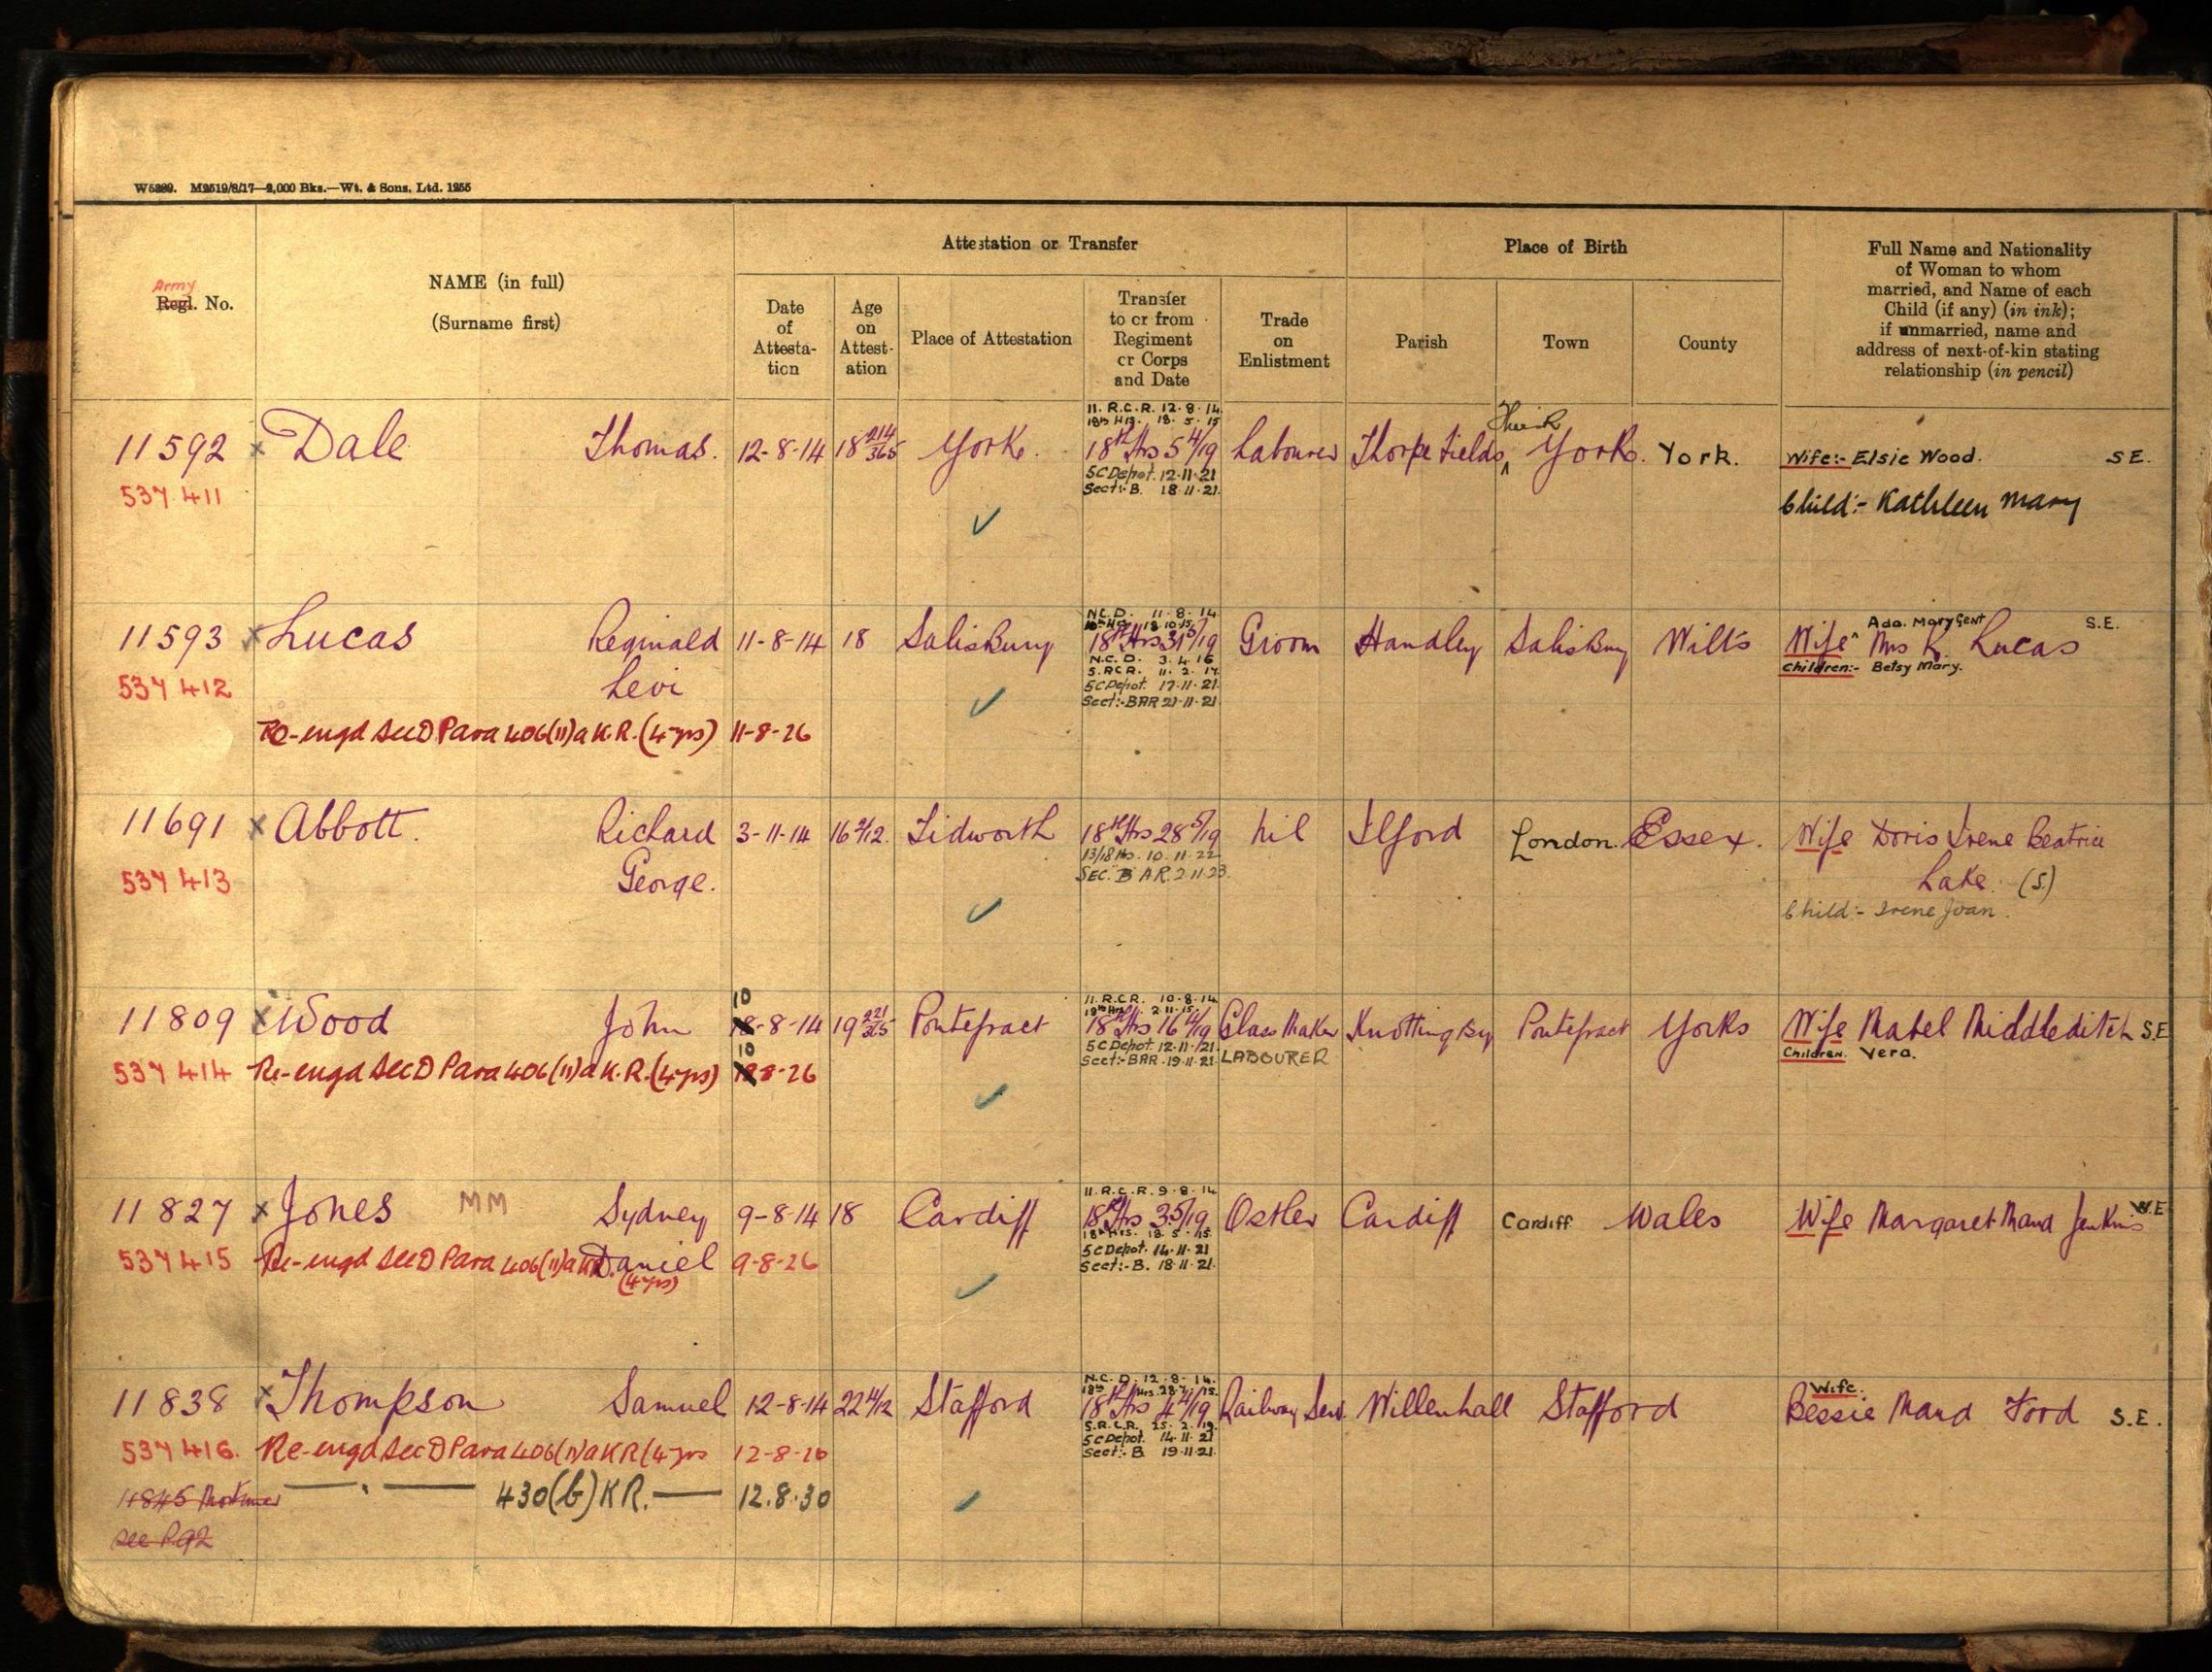 W5389. M2519/8/17—2,000 Bks.—Wt. & Sons, Ltd. 1255
Army
Regl. No.
NAME (in full)
(Surname first)
Attestation or Transfer
Date
of
Attesta-
tion
Age
on
Attest-
ation
Place of Attestation
Transfer
to or from
Regiment
or Corps
and Date
Trade
on
Enlistment
Place of Birth
Parish
Town
County
Full Name and Nationality
of Woman to whom
married, and Name of each
Child (if any) (in ink);
if unmarried, name and
address of next-of-kin stating
relationship (in pencil)
11. R.C.R. 12.8.14.
18th Hrs. 18.5.15
11592 x Dale Thomas. 12-8-14 18 214/365 York. 18th Hrs 5 4/19 Labourer Thorpe Fields, Thirsk York. York. Wife:- Elsie Wood. S E.
537 411 5C Depot. 12.11.21
Sect:- B. 18.11.21.
Child:- Kathleen Mary
N.C.D. 11.8.14
11593 x Lucas Reginald 11-8-14 18 Salisbury 18th Hrs 31 5/19 Groom Handley Salisbury Wilts Wife Ada. Mary Gent Mrs R. Lucas S.E.
537 412 Levi N.C.D. 3.4.16
S.RCR. 11.2.17
5C Depot. 17.11.21.
Sect:- BAR 21.11.21.
Children:- Betsy Mary.
Re-engd Sec D Para 406(11)a K.R. (4 yrs) 11-8-26
11691 x Abbott. Richard 3-11-14 16 2/12. Tidworth 18th Hrs 28 5/19 Nil Ilford London. Essex. Wife Doris Irene Beatrice
537 413 George. 13/18 Hrs. 10.11.22
SEC. B AR. 2.11.23.
Lake. (S.)
Child:- Irene Joan.
11.R.CR. 10.8.14
11809 x Wood John 10-8-14 19 221/365 Pontefract 18th Hrs 16 4/19 Glass Maker Knottingley Pontefract Yorks Wife Mabel Middleditch S.E
5C Depot. 12.11.21.
Sect:- BAR. 19.11.21. LABOURER
Children. Vera.
537 414 Re-engd Sec D Para 406(11)a K.R. (4 yrs) 10 8-26
11.R.C.R. 9.8.14
11827 x Jones MM Sydney 9-8-14 18 Cardiff 18th Hrs 3 5/19. Ostler Cardiff Cardiff Wales Wife Margaret Maud Jenkins W.E
18th Hrs. 18.5.15.
537 415 Re-engd Sec D Para 406(11)a K.R. Daniel 9-8-26
(4 yrs)
5C Depot. 14.11.21
Sect:- B. 18.11.21.
N.C.D. 12.8.14.
11838 x Thompson Samuel 12-8-14 22 4/12 Stafford 18th Hrs 4 4/19 Railway Serv. Willenhall Stafford Wife. Bessie Maud Ford S.E.
S.R.C.R. 25.2.19.
5C Depot. 14.11.21
Sect:- B 19.11.21.
537 416. Re-engd Sec D Para 406(11)a KR (4 yrs 12-8-26
11845 Mortimer — " — 430(b) KR. — 12.8.30
see P.92